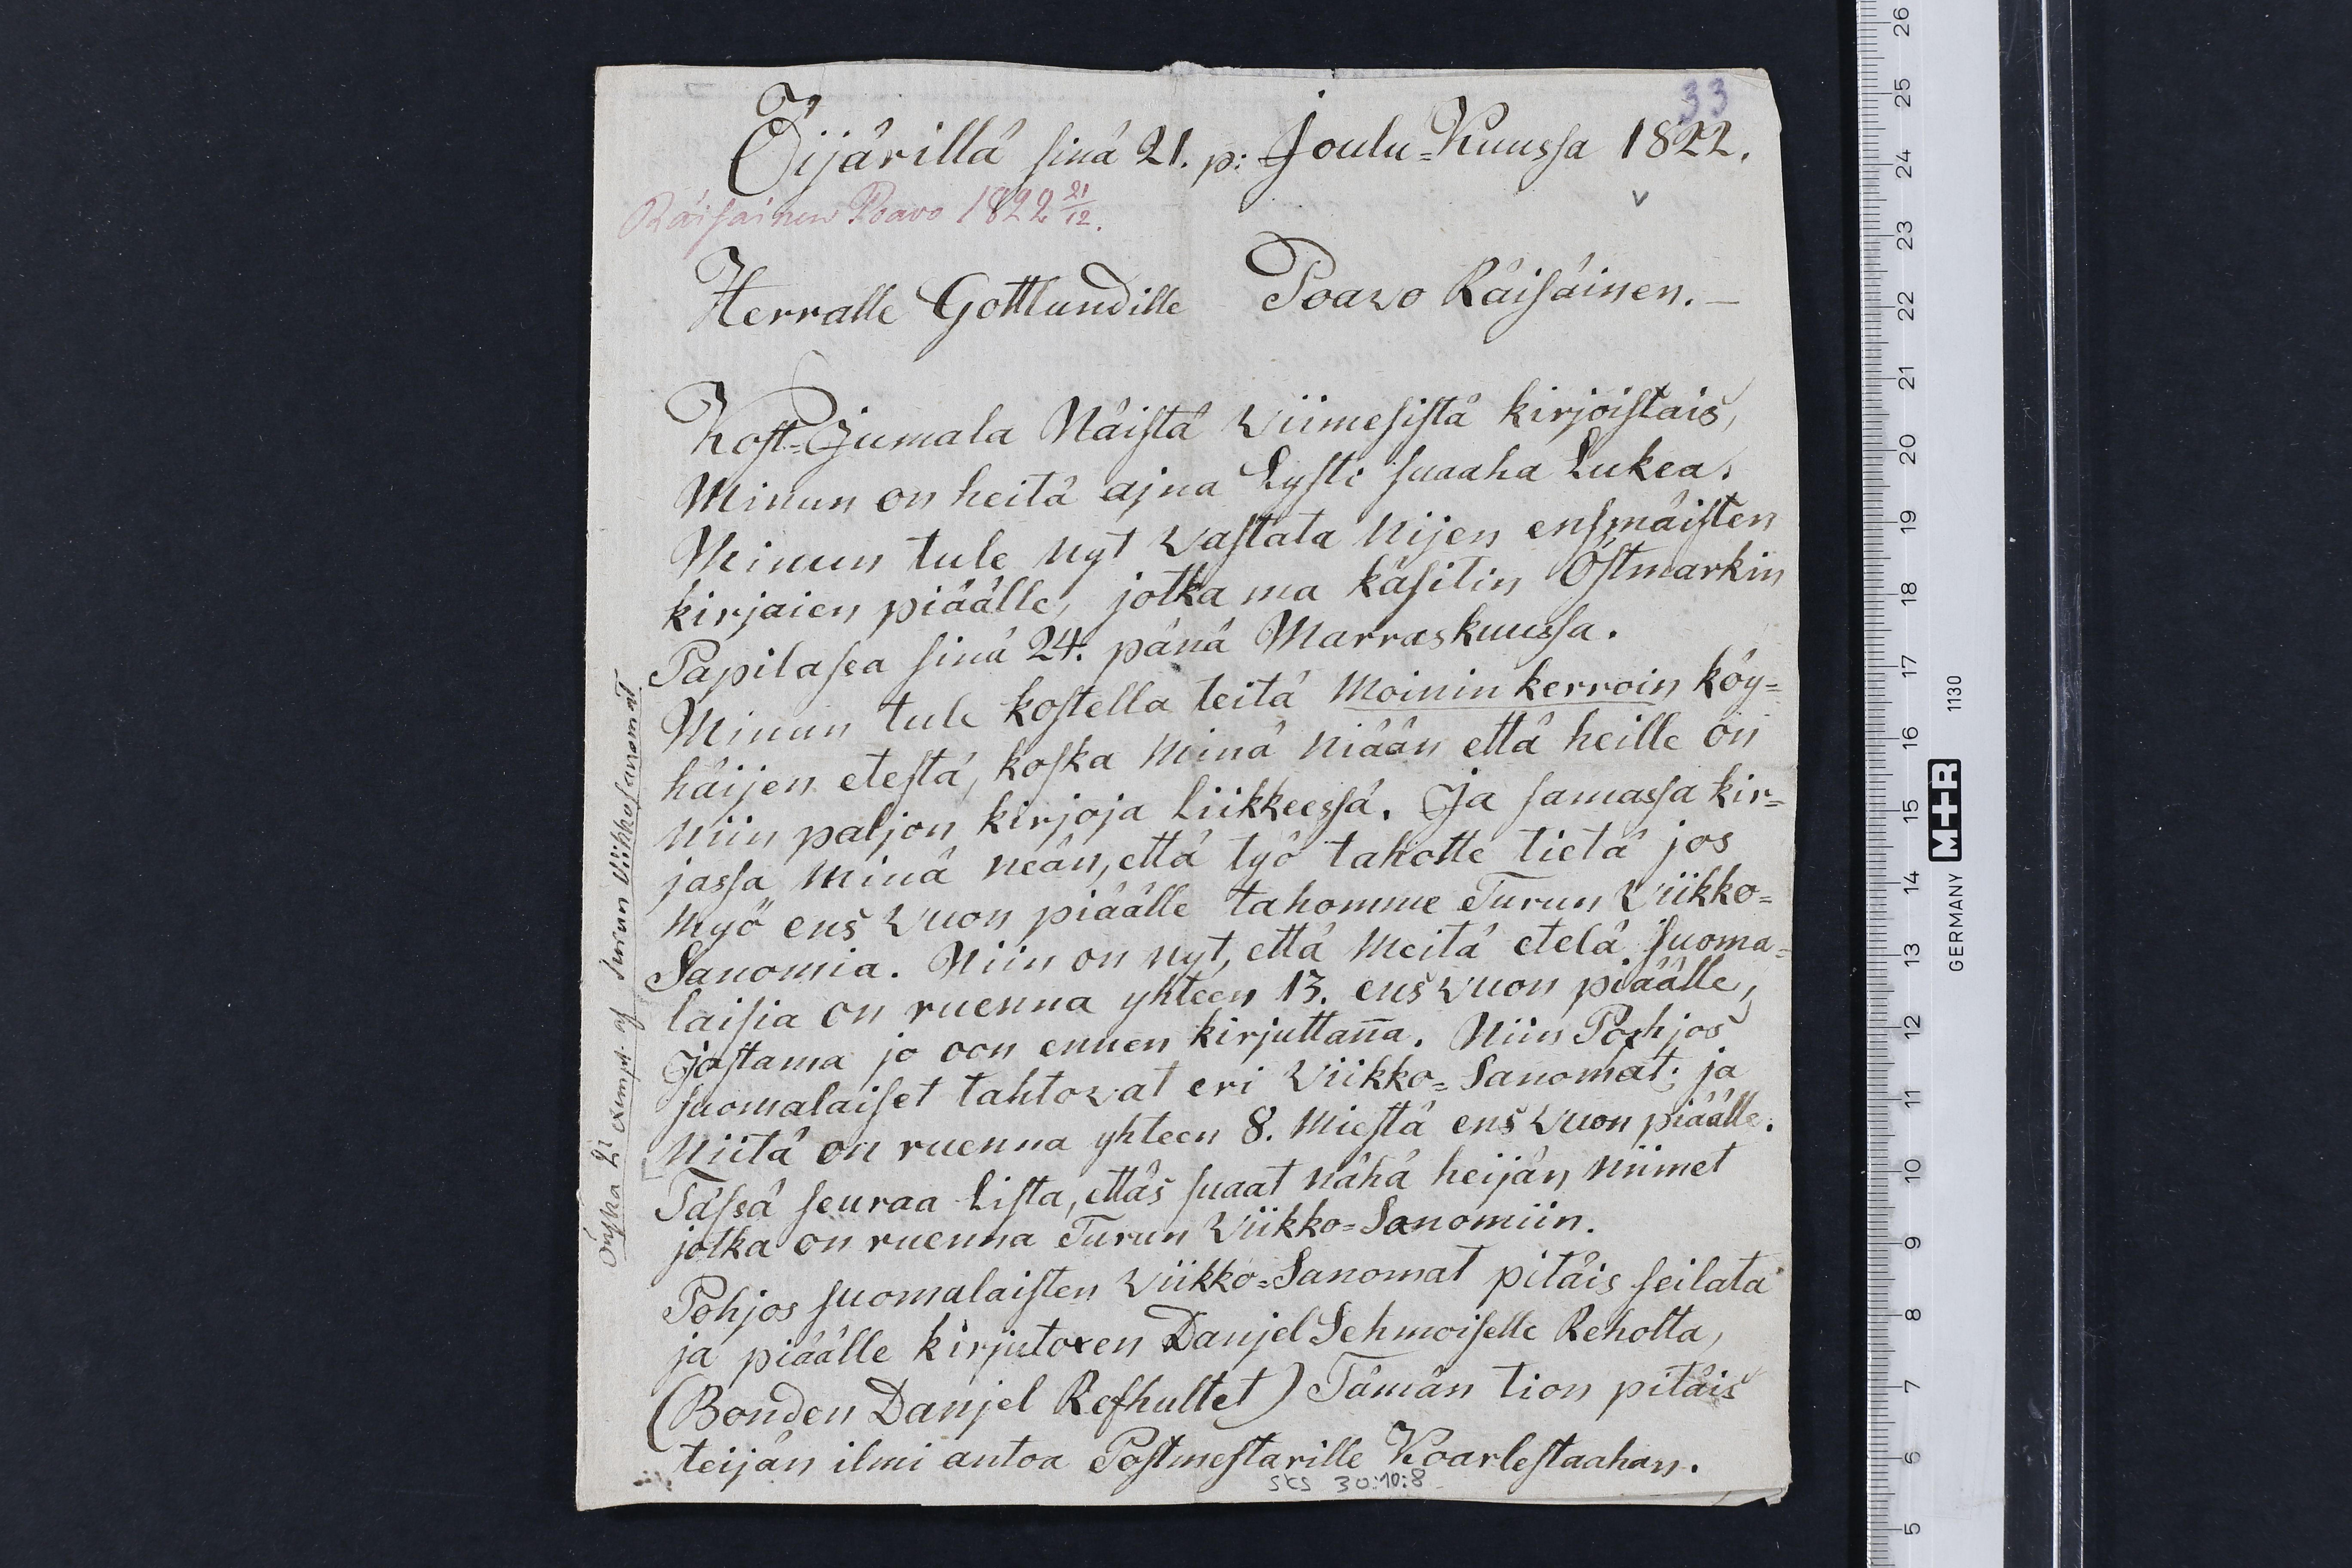 33
Öijärillä sinä 21. p: Joulu-Kuussa 1822.
Räisäinen Poavo 1822 21/12.
v
Herralle Gottlundille Poavo Räisäinen. —
Kost-Jumala Näistä Viimesistä kirjoistais,
Minun on heitä ajna Lysti suaaha Lukea.
Minun tule nyt Vastata Nijen ensmäisten
kirjaien piäälle, jotka ma käsitin Östmarkin
Papilasea sinä 24. pänä Marraskuussa.
Minun tule kostella teitä Moinin kerroin köy=
häijen etestä, koska Minä Niään että heille on
Niin paljon kirjoja Liikkeessä. Ja samassa kir=
jassa Minä neän, että työ tahotte tietä jos
Myö ens Vuon piäälle tahomme Turun Viikko=
Sanomia. Niin on nyt, että Meitä etelä Suoma=
laisia on ruenna yhteen 13. ens Vuon piäälle,
Jostama jo oon ennen kirjuttan̄a. Niin Pohjos
suomalaiset tahtovat eri Viikko=Sanomat; ja
Niitä on ruenna yhteen 8. Miestä ens Vuon piäälle.
Tässä seuraa Lista, ettäs suaat Nähä heijän Niimet
jotka on ruenna Turun Viikko=Sanomiin.
Pohjos suomalaisten Viikko=Sanomat pitäis seilata
ja piäälle kirjutoxen Danjel Lehmoiselle Reholta,
(Bonden Danjel Refhultet) Tämän tion pitäis
teijän ilmi antoa Postmestarille Koarlestaahan.
SKS 30:10:8
Önska 21 exempl. af Turun Viikkosanomat